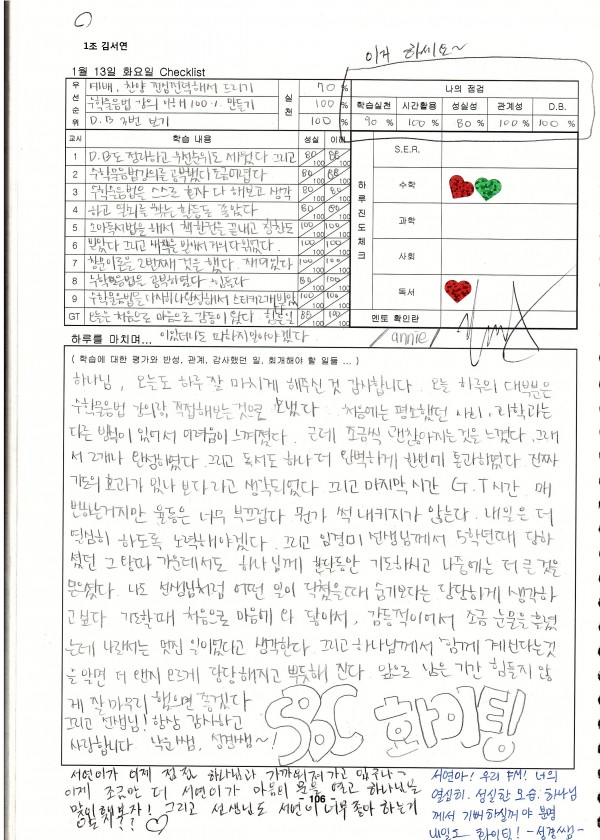 1조 김서연
이거 하세요~
1월 13일 화요일 Checklist
우선순위
예배, 찬양 전심전력해서 드리기
수학물음법 강의 이해 100% 만들기
D.B 3번 보기
실천
70 %
100 %
100 %
나의 점검
학습실천 시간활용 성실성 관계성 D.B.
90 % 100 % 80 % 100 % 100 %
교시 학습 내용 성실 이해
1 D.B도 정하고 우선순위도 세웠다 그리고 80/100 88/100
2 수학물음법강의를 공부했다 조금어렵다 80/100 88/100
3 수학물음법을 스스로 혼자 다 해보고 생각 80/100 80/100
4 하고 열쇠를 찾는 활동도 좋았다 80/100 80/100
5 소마독서법을 해서 책한권을 끝내고 칭찬도 100/100 100/100
6 받았다 그리고 새책을 받아서 거의 다 읽었다. 100/100 100/100
7 창문이론을 2번째 것을 했다. 재미있었다 100/100 100/100
8 수학물음법을 공부하였다 힘들다 100/100 100/100
9 수학물음법을 다시하나 완성해서 스티커2개받았 100/100 100/100
GT 다 처음으로 마음으로 감동이 왔다 힘든일 80/100 100/100
하루진도체크
S.E.R.
수학
과학
사회
독서
멘토 확인란 annie
하루를 마치며... 이있더라도 피하지말아야겠다
( 학습에 대한 평가와 반성, 관계, 감사했던 일, 회개해야 할 일들 ... )
하나님, 오늘도 하루 잘 마치게 해주신 것 감사합니다. 오늘 하루의 대부분은
수학물음법 강의랑, 직접해보는것으로 보냈다. 처음에는 평소했던 사회, 과학과는
다른 방식이 있어서 어려움이 느껴졌다. 근데 조금씩 괜찮아지는것을 느꼈다. 그래
서 2개나 완성하였다. 그리고 독서도 하나 더 완벽하게 한번에 통과하였다. 진짜
기도의 효과가 있나 보다 라고 생각되었다 그리고 마지막 시간 G.T시간. 매
번하는거지만 율동은 너무 부끄럽다 뭔가 썩 내키지가 않는다. 내일은 더
열심히 하도록 노력해야겠다. 그리고 임경미 선생님께서 5학년때 당하
셨던 그 왕따 가운데에서도 하나님께 한달동안 기도하시고 나중에는 더 큰 것을
얻으셨다. 나도 선생님처럼 어떤 일이 닥쳤을때 숨기보다는 당당하게 생각하
고싶다 기도할때 처음으로 마음에 와 닿아서, 감동적이어서 조금 눈물을 흘렸
는데 나로서는 멋진 일이었다고 생각한다. 그리고 하나님께서 함께 계신다는것
을 알면 더 왠지 모르게 당당해지고 뿌듯해 진다. 앞으로 남은 기간 힘들지 않
게 잘 마무리 했으면 좋겠다
그리고 선생님! 항상 감사하고
사랑합니다 성경쌤~!
SBC 화이팅
서연이가 이제 점점 하나님과 가까워져가고 있구나~
이제 조금만 더 서연이가 마음의 문을 열고 하나님을
맞이해보자! 그리고 선생님도 서연이 너무 좋아 하는거
알지?? ♡
106
서연아! 우리 FM! 너의
열심히, 성실한 모습. 하나님
께서 기뻐하실꺼야 분명
내일도 화이팅! -성경쌤-